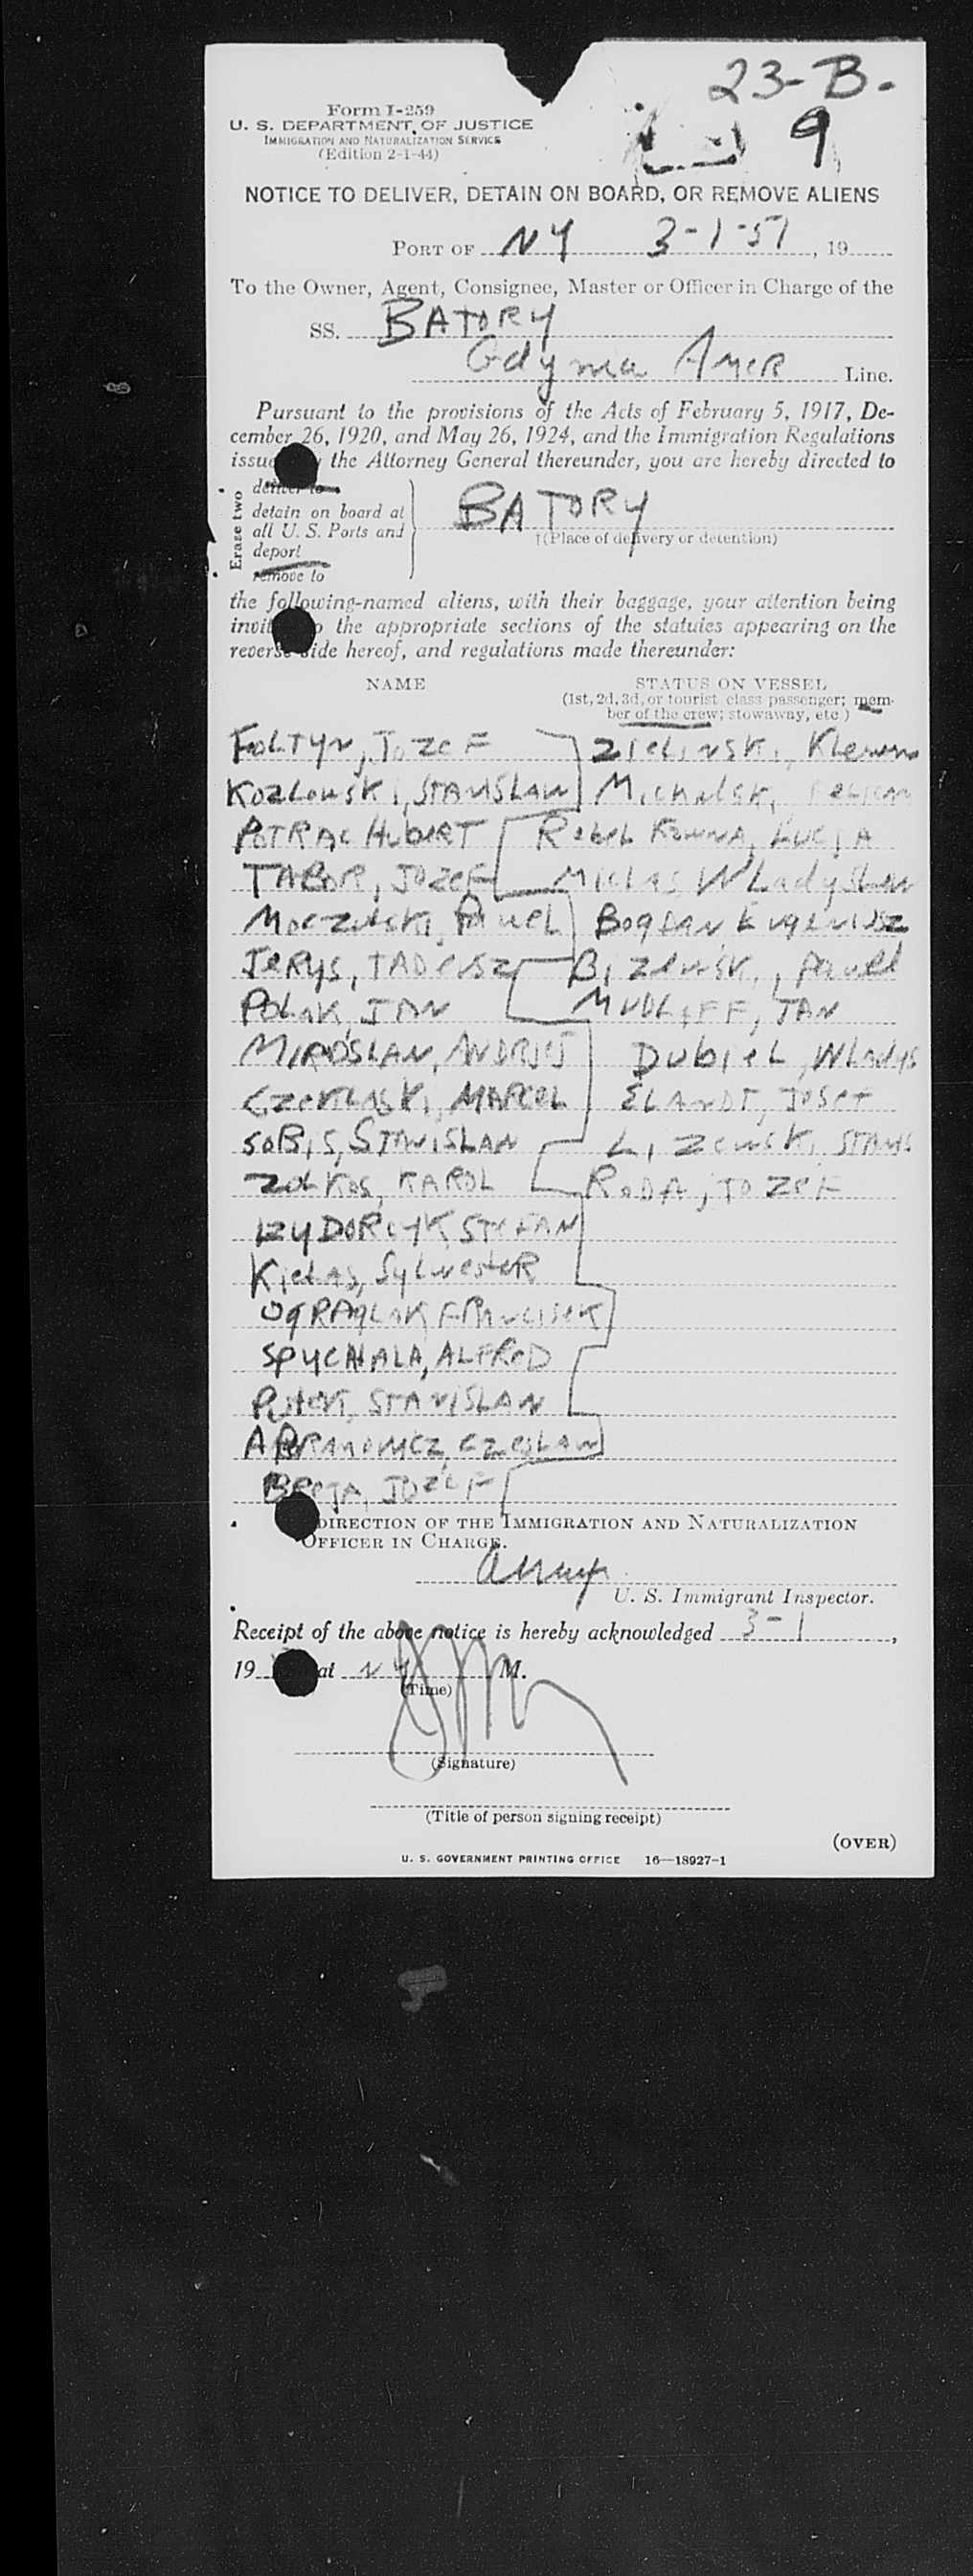 23-B.
9
Form I-259
U. S. DEPARTMENT OF JUSTICE
IMMIGRATION AND NATURALIZATION SERVICE
(Edition 2-1-44)
NOTICE TO DELIVER, DETAIN ON BOARD, OR REMOVE ALIENS
PORT OF NY 3-1-51, 19
To the Owner, Agent, Consignee, Master or Officer in Charge of the
SS. BATORY
Gdynia Amer Line.
Pursuant to the provisions of the Acts of February 5, 1917, De-
cember 26, 1920, and May 26, 1924, and the Immigration Regulations
issued the Attorney General thereunder, you are hereby directed to
Erase two
deliver to
detain on board at
all U. S. Ports and
deport
remove to
BATORY
†(Place of delivery or detention)
the following-named aliens, with their baggage, your attention being
invited to the appropriate sections of the statutes appearing on the
reverse side hereof, and regulations made thereunder:
NAME STATUS ON VESSEL
(1st, 2d, 3d, or tourist class passenger; mem-
ber of the crew; stowaway, etc.)
FOLTYN, JOZEF ZIELINSKI, Klemens
KOZLOWSKI, STANISLAW Michalski
POTRAC HUBERT LUCJA
TABOR, JOZEF Wladyslaw
Pawel BOGDAN EUGENIUSZ
JERYS, TADEUSZ Pawel
POLAK, JAN MUDLAFF, JAN
MIROSLAN, ANDRJEJ DUBIEL, WLADYS
MARCEL ELANDT, JOSEF
SOBIS, STANISLAN STANIS
ZOLKOS, KAROL RODA, JOZEF
IZYDORCYK STEFAN
Kielas, Sylwester
FRANCISEK
SPYCHALA, ALFRED
STANISLAW
CZESLAW
JOZEF
DIRECTION OF THE IMMIGRATION AND NATURALIZATION
OFFICER IN CHARGE.
U. S. Immigrant Inspector.
Receipt of the above notice is hereby acknowledged 3-1,
19 at NY M.
(Time)
(Signature)
(Title of person signing receipt)
(OVER)
U. S. GOVERNMENT PRINTING OFFICE 16—18927-1